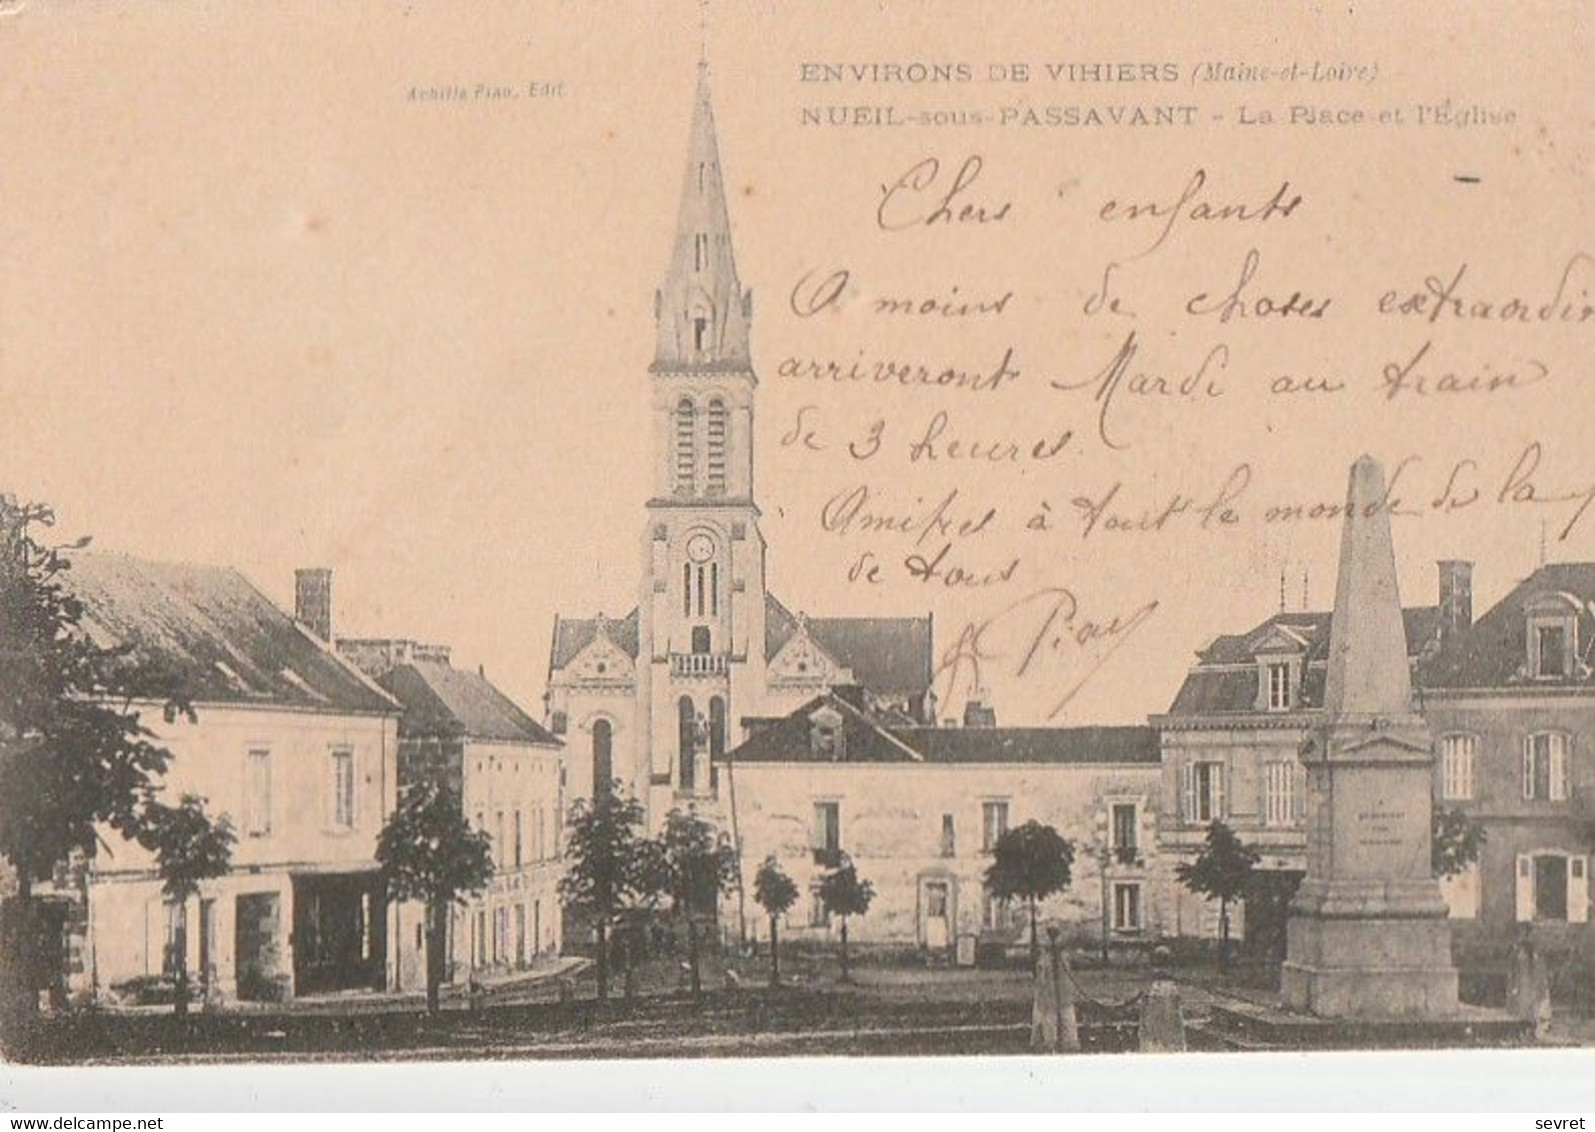 Achille Piau, Edit
ENVIRONS DE VIHIERS (Maine-et-Loire)
NUEIL-sous-PASSAVANT - La Place et l'Église
Chers enfants
A moins de choses extraordin
arriveront Mardi au train
de 3 heures.
Amitiés à tout le monde de la p
de tous
Piau
www.delcampe.net
sevret